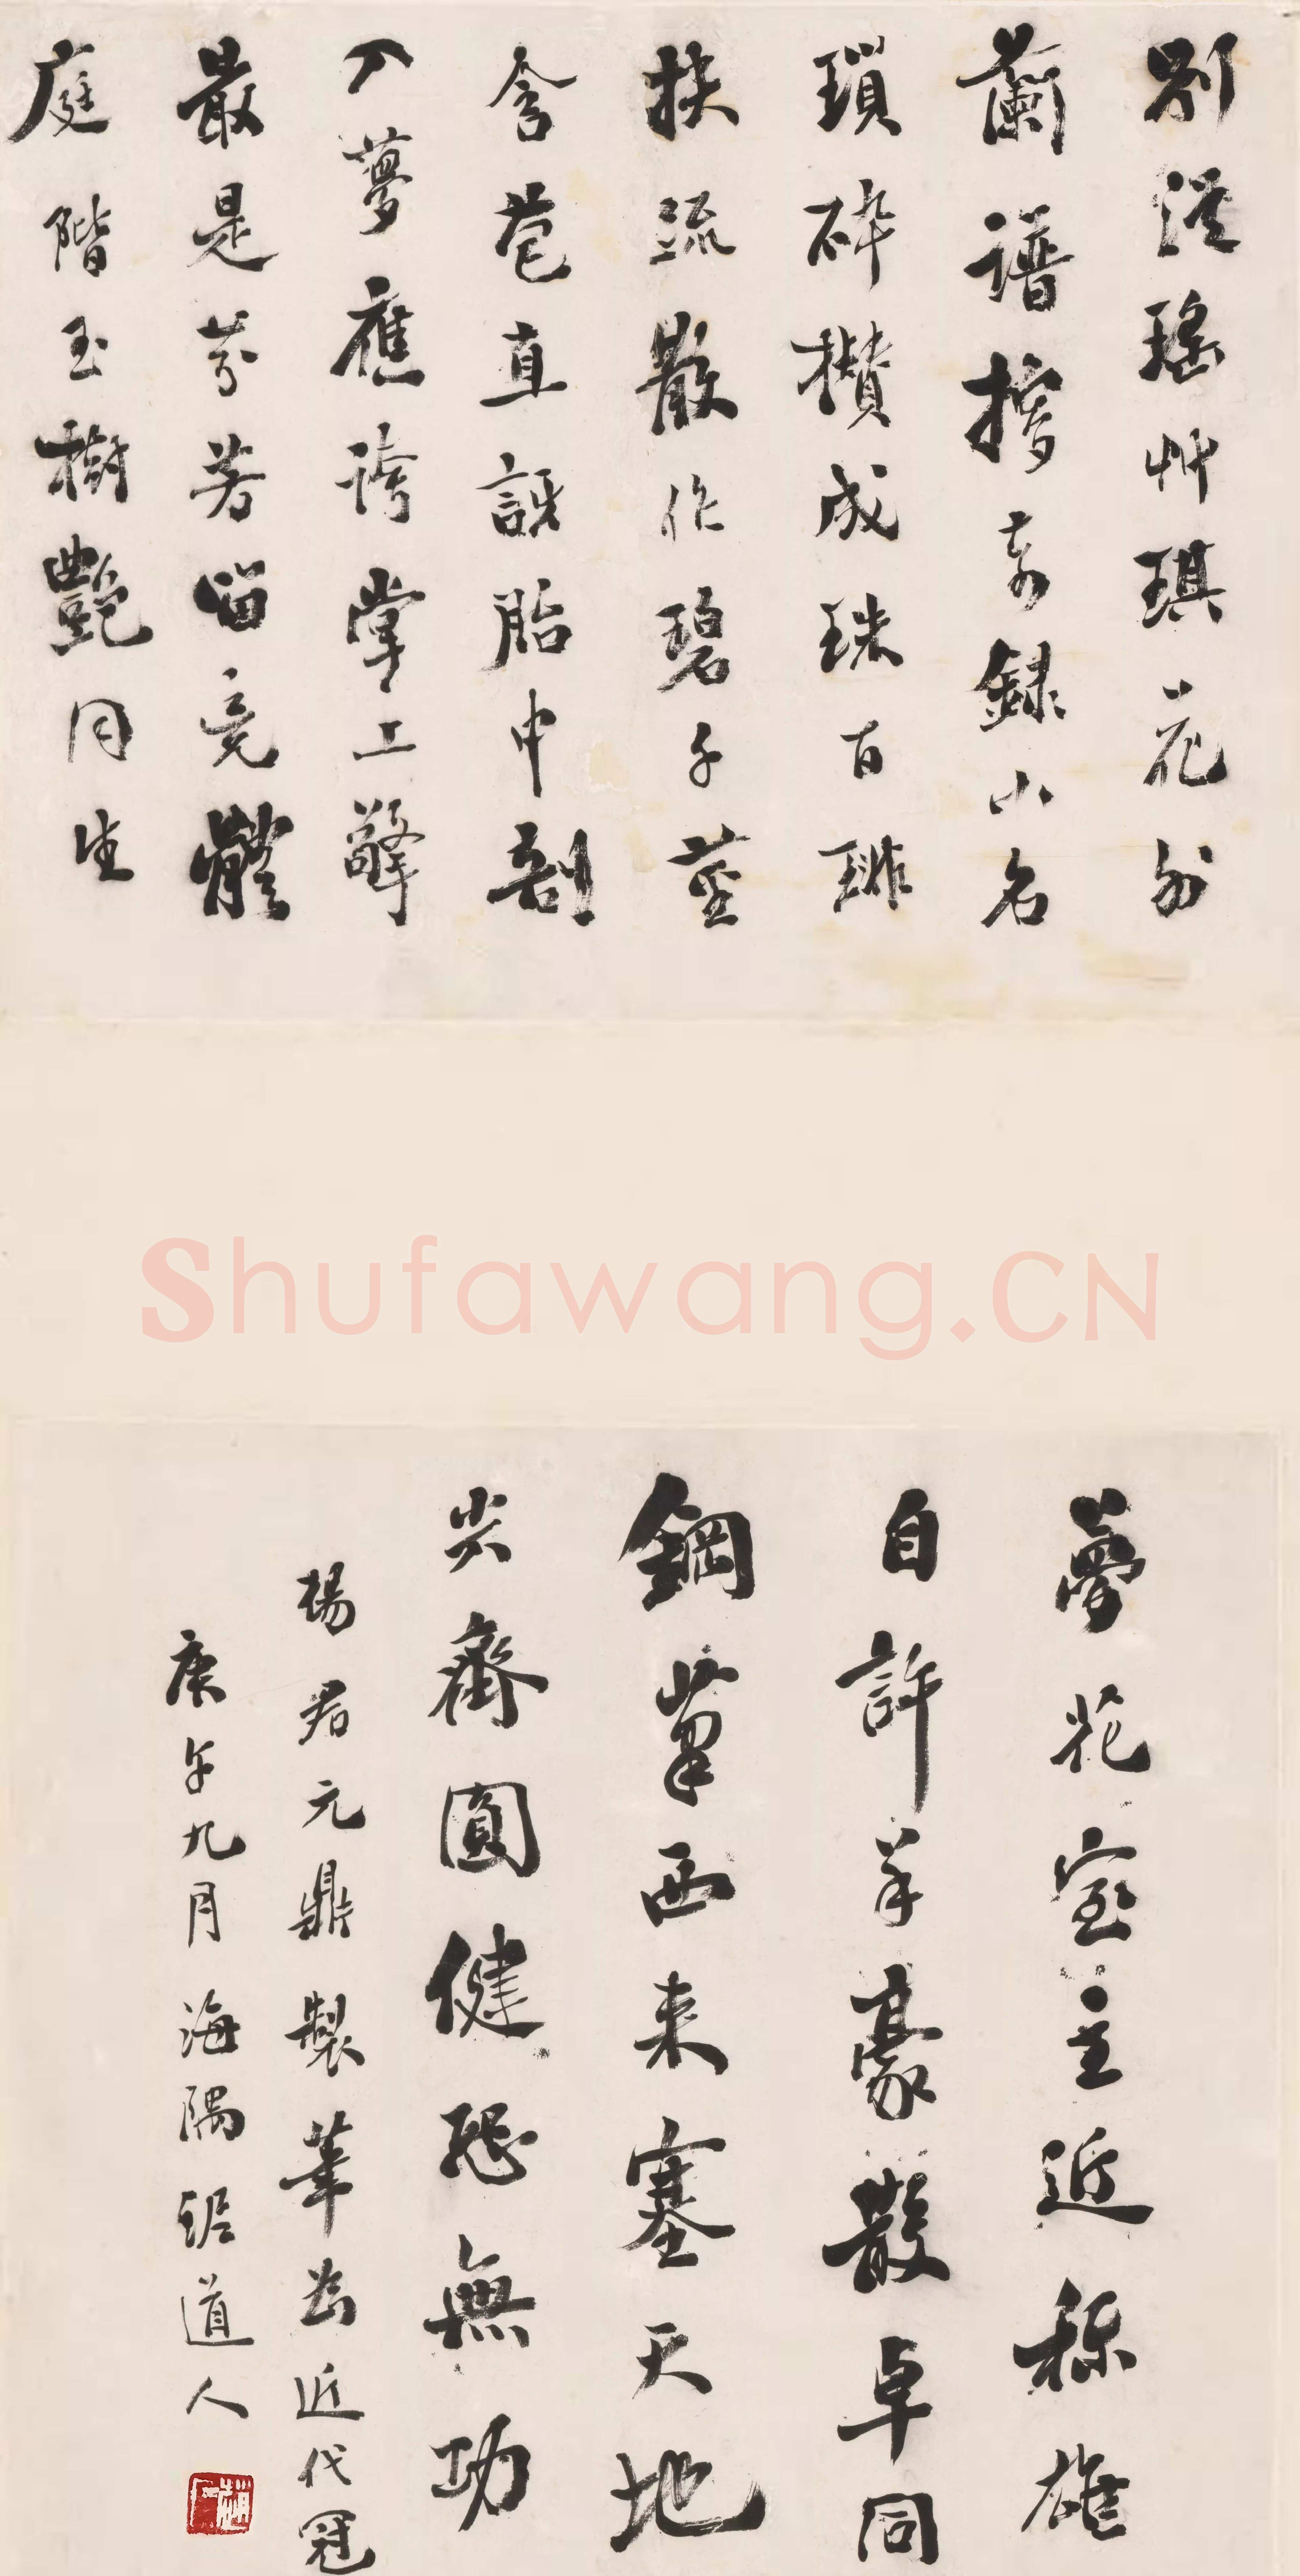 別從瑤艸琪花外
蘭譜攟奇錄小名
瑣碎攢成珠百琲
扶疏散作碧千莖
含苞直訝胎中剖
入夢應誇掌上擎
最是芬芳留竟體
庭階玉樹艷同生
Shufawang.CN
夢花室主近称雄
自許羊豪散卓同
鋼筆西来塞天地
尖齊圓健恐無功
楊君元鼎製筆為近代冠
庚午九月海隅琚道人